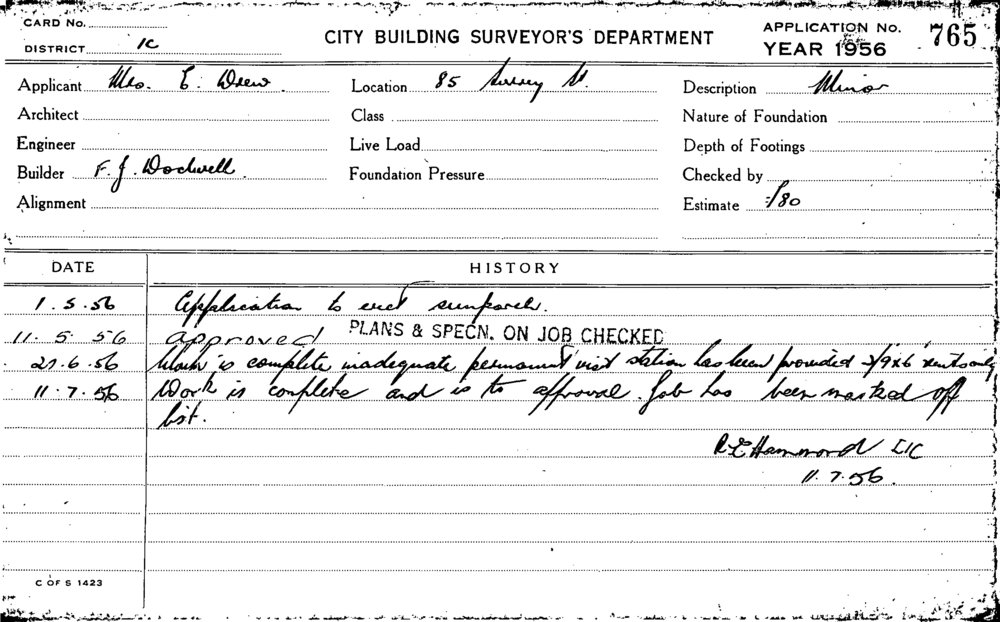 CARD No.
DISTRICT 1C
CITY BUILDING SURVEYOR'S DEPARTMENT
APPLICATION No. 765
YEAR 1956
Applicant Mrs. E. Drew. Location 85 Surrey St. Description Minor
Architect Class Nature of Foundation
Engineer Live Load Depth of Footings
Builder F. J. Dodwell. Foundation Pressure Checked by
Alignment Estimate £80
DATE HISTORY
1.5.56 Application to erect sunporch.
11.5.56 approved PLANS & SPECN. ON JOB CHECKED
27.6.56 Work is complete inadequate permanent has been provided 9x6 vents only
11.7.56 Work is complete and is to approval. Job has been marked off
list.
R E Hammond 1C
11.7.56.
C OF S 1423